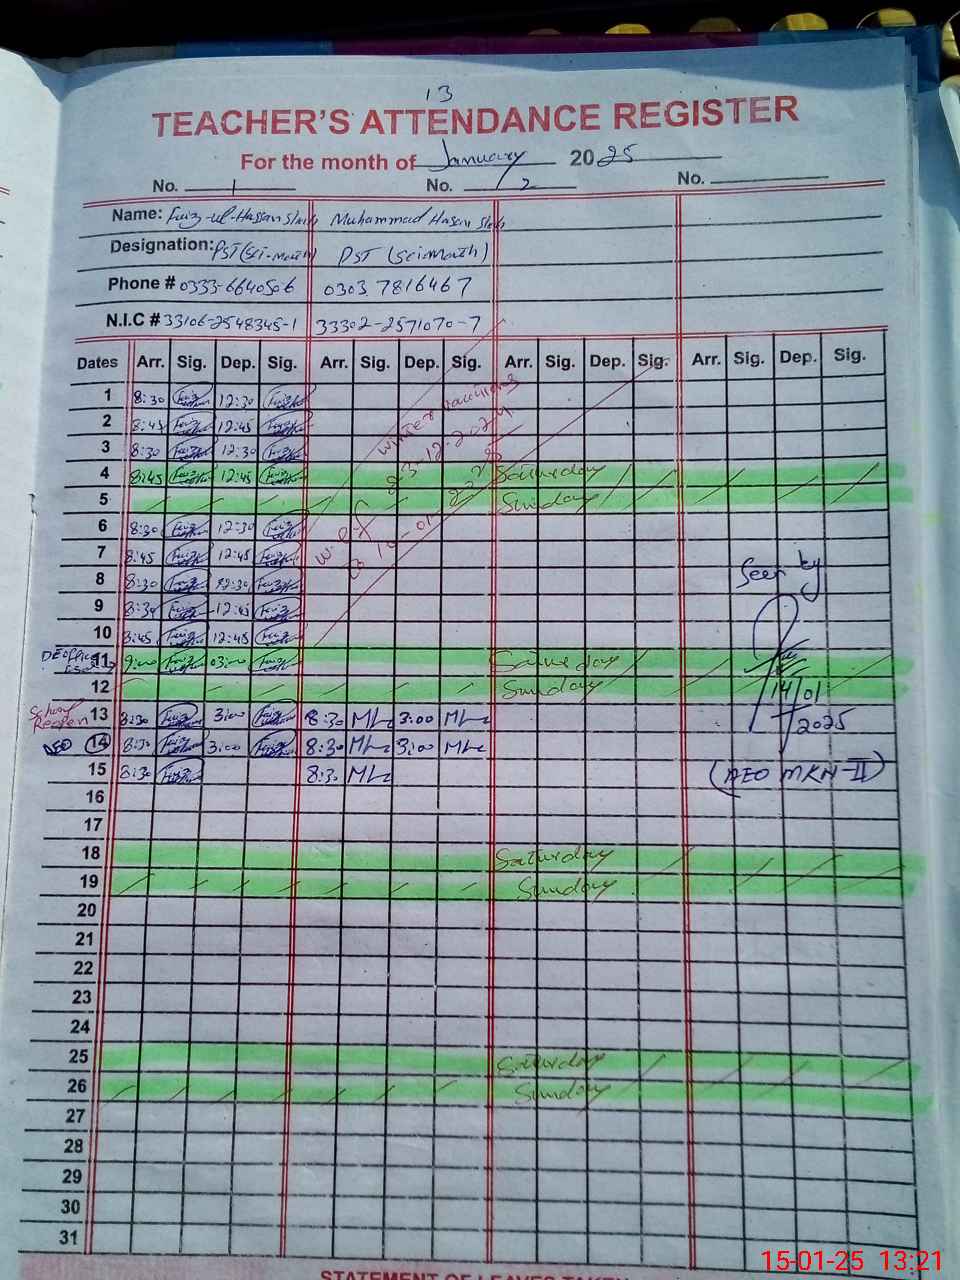 13
TEACHER'S ATTENDANCE REGISTER
For the month of January 2025
No. 1 No. 2 No.
Name: Faiz-ul-Hassan Muhammad Hasan
Designation: PST (Sci-Math) PST (Sci Math)
Phone # 0333-6640506 0303 7816467
N.I.C # 33106-2548345-1 33302-2571070-7
Dates Arr. Sig. Dep. Sig. Arr. Sig. Dep. Sig. Arr. Sig. Dep. Sig. Arr. Sig. Dep. Sig.
1 8:30 12:30
2 8:45 12:45
3 8:30 12:30
4 8:45 12:45 Saturday
5 Sunday
6 8:30 12:30
7 8:45 12:45
8 8:30 12:30
9 8:30 12:45
10 8:45 12:45
winter vacations
w.e.f 23-12-2024
to 10-01-2025
11 9:00 03:00 Saturday
12 Sunday
School Reopen 13 8:30 3:00 8:30 ML 3:00 ML
AEO 14 8:30 3:00 8:30 ML 3:00 ML
15 8:30 8:30 ML
Seen by
14/01
2025
(AEO MKN-II)
16
17
18 Saturday
19 Sunday
20
21
22
23
24
25 Saturday
26 Sunday
27
28
29
30
31
STATEMENT OF LEAVES TAKEN
15-01-25 13:21